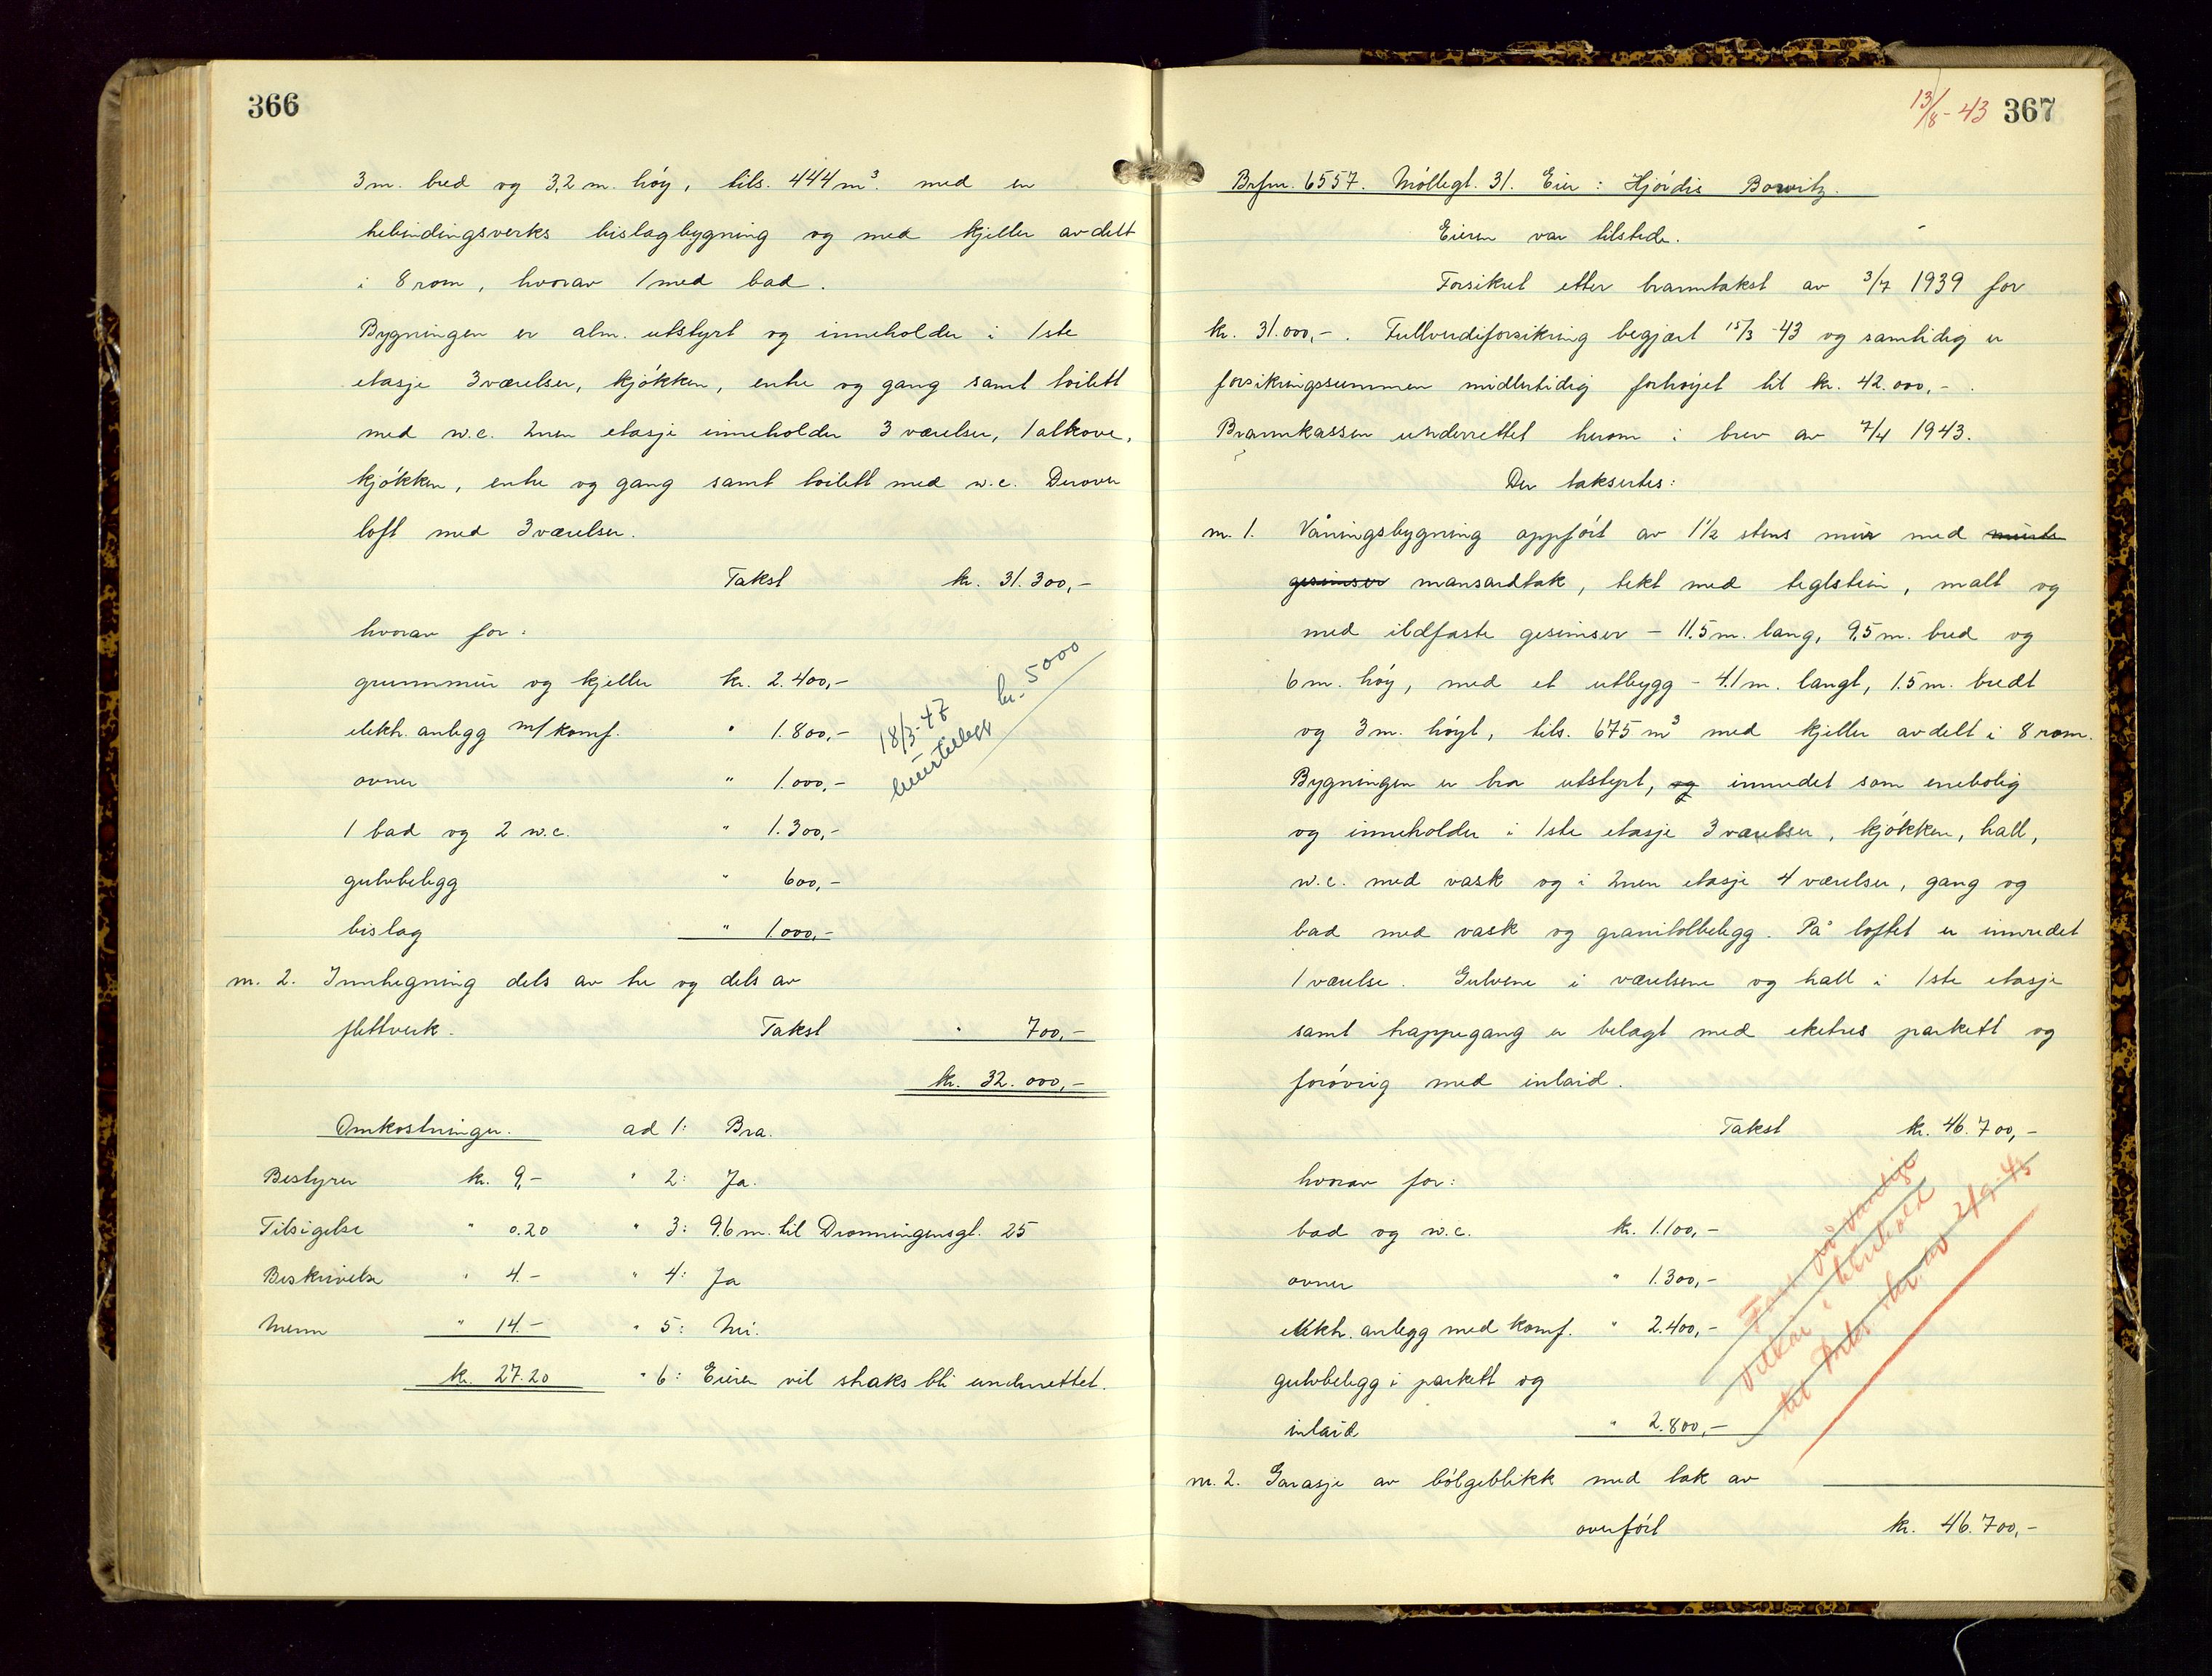 366
3 m. bred og 3,2 m. høy, tils. 444 m³. med en
trebindingsverks bislagbygning og med kjeller avdelt
i 8 rom, hvorav 1 med bad.
Bygningen er alm. utstyrt og inneholder i 1ste
etasje 3 værelser, kjøkken, entre og gang samt toilett
med w.c. 2nen etasje inneholder 3 værelser, 1 alkove,
kjøkken, entre og gang samt toilett med w.c. Derover
loft med 3 værelser.
Takst kr. 31.300,-
hvorav for:
grunnmur og kjeller kr. 2.400,-
elektr. anlegg m/komf. " 1.800,-
ovner " 1.000,-
18/3-47 kr. 5000
1 bad og 2 w.c. " 1.300,-
gulvbelegg " 600,-
bislag " 1.000,-
nr. 2. Innhegning dels av tre og dels av
flettverk. Takst " 700,-
kr. 32.000,-
Omkostninger. ad 1: Bra.
Bestyrer kr. 9,- " 2: Ja.
Tilsigelse " 0.20 " 3: 9.6 m. til Dronningensgt. 25
Beskrivelse " 4.- " 4: Ja
Menn " 14.- " 5: Nei.
kr. 27.20 " 6: Eieren vil straks bli underrettet.
13/8-43 367
Brfnr. 6557. Møllegt. 31. Eier: Hjørdis Bowitz.
Eieren var tilstede.
Forsikret etter branntakst av 3/7 1939 for
kr. 31.000,-. Fullverdiforsikring begjært 15/3-43 og samtidig er
forsikringssummen midlertidig forhøyet til kr. 42.000,-.
Brannkassen underrettet herom i brev av 7/4 1943.
Der taksertes:
nr. 1. Våningsbygning oppført av 1½ stens mur med murte
gesimser mansardtak, tekt med teglstein, malt og
med ildfaste gesimser - 11.5 m. lang, 9.5 m. bred og
6 m. høy, med et utbygg - 4.1 m. langt, 1.5 m. bredt
og 3 m. høyt, tils. 675 m³ med kjeller avdelt i 8 rom.
Bygningen er bra utstyrt, og innredet som enebolig
og inneholder i 1ste etasje 3 værelser, kjøkken, hall,
w.c. med vask og i 2nen etasje 4 værelser, gang og
bad med vask og granitolbelegg. På loftet er innredet
1 værelse. Gulvene i værelsene og hall i 1ste etasje
samt trappegang er belagt med eketres parkett og
forøvrig med inlaid.
Takst kr. 46.700,-
hvorav for:
bad og w.c. kr. 1.100,-
ovner " 1.300,-
elektr. anlegg med komf. " 2.400,-
på vanlige
vilkår i henhold
til br. av 2/9-43
gulvbelegg i parkett og
inlaid " 2.800,-
nr. 2. Garasje av bølgeblikk med tak av
overført kr. 46.700,-